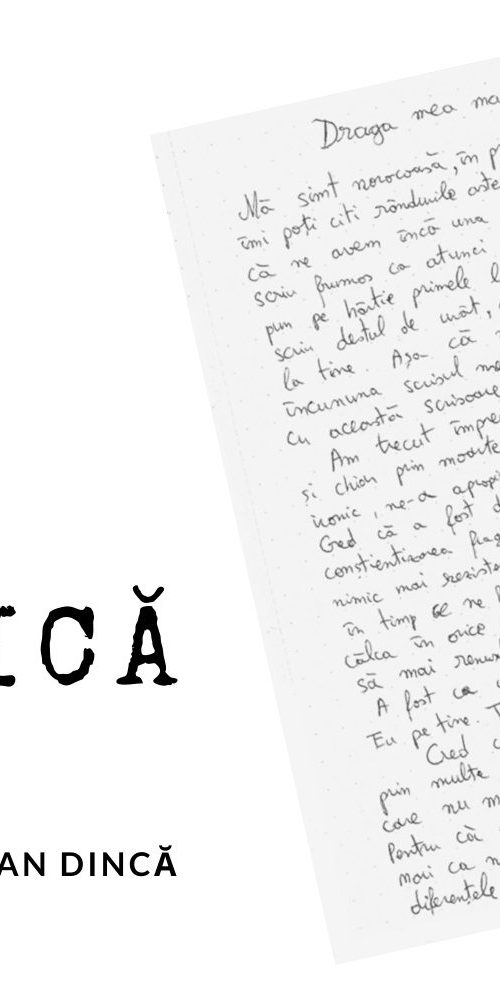 Draga mea ma
Mă simt norocoasă, în p
îmi poți citi rândurile aste
că ne avem încă una
scriu frumos ca atunci
pun pe hârtie primele l
scriu destul de urât,
la tine. Așa că
încununa scrisul me
cu această scrisoare
Am trecut împre
și chiar prin moarte
ironic, ne-a apropi
Cred că a fost d
conștientizarea frag
nimic mai reziste
în timp ce ne
călca în orice
să mai renun
A fost ca
Eu pe tine. T
Cred c
prin multe
care nu m
Pentru că
mai ca n
diferențele
ICĂ
AN DINCĂ